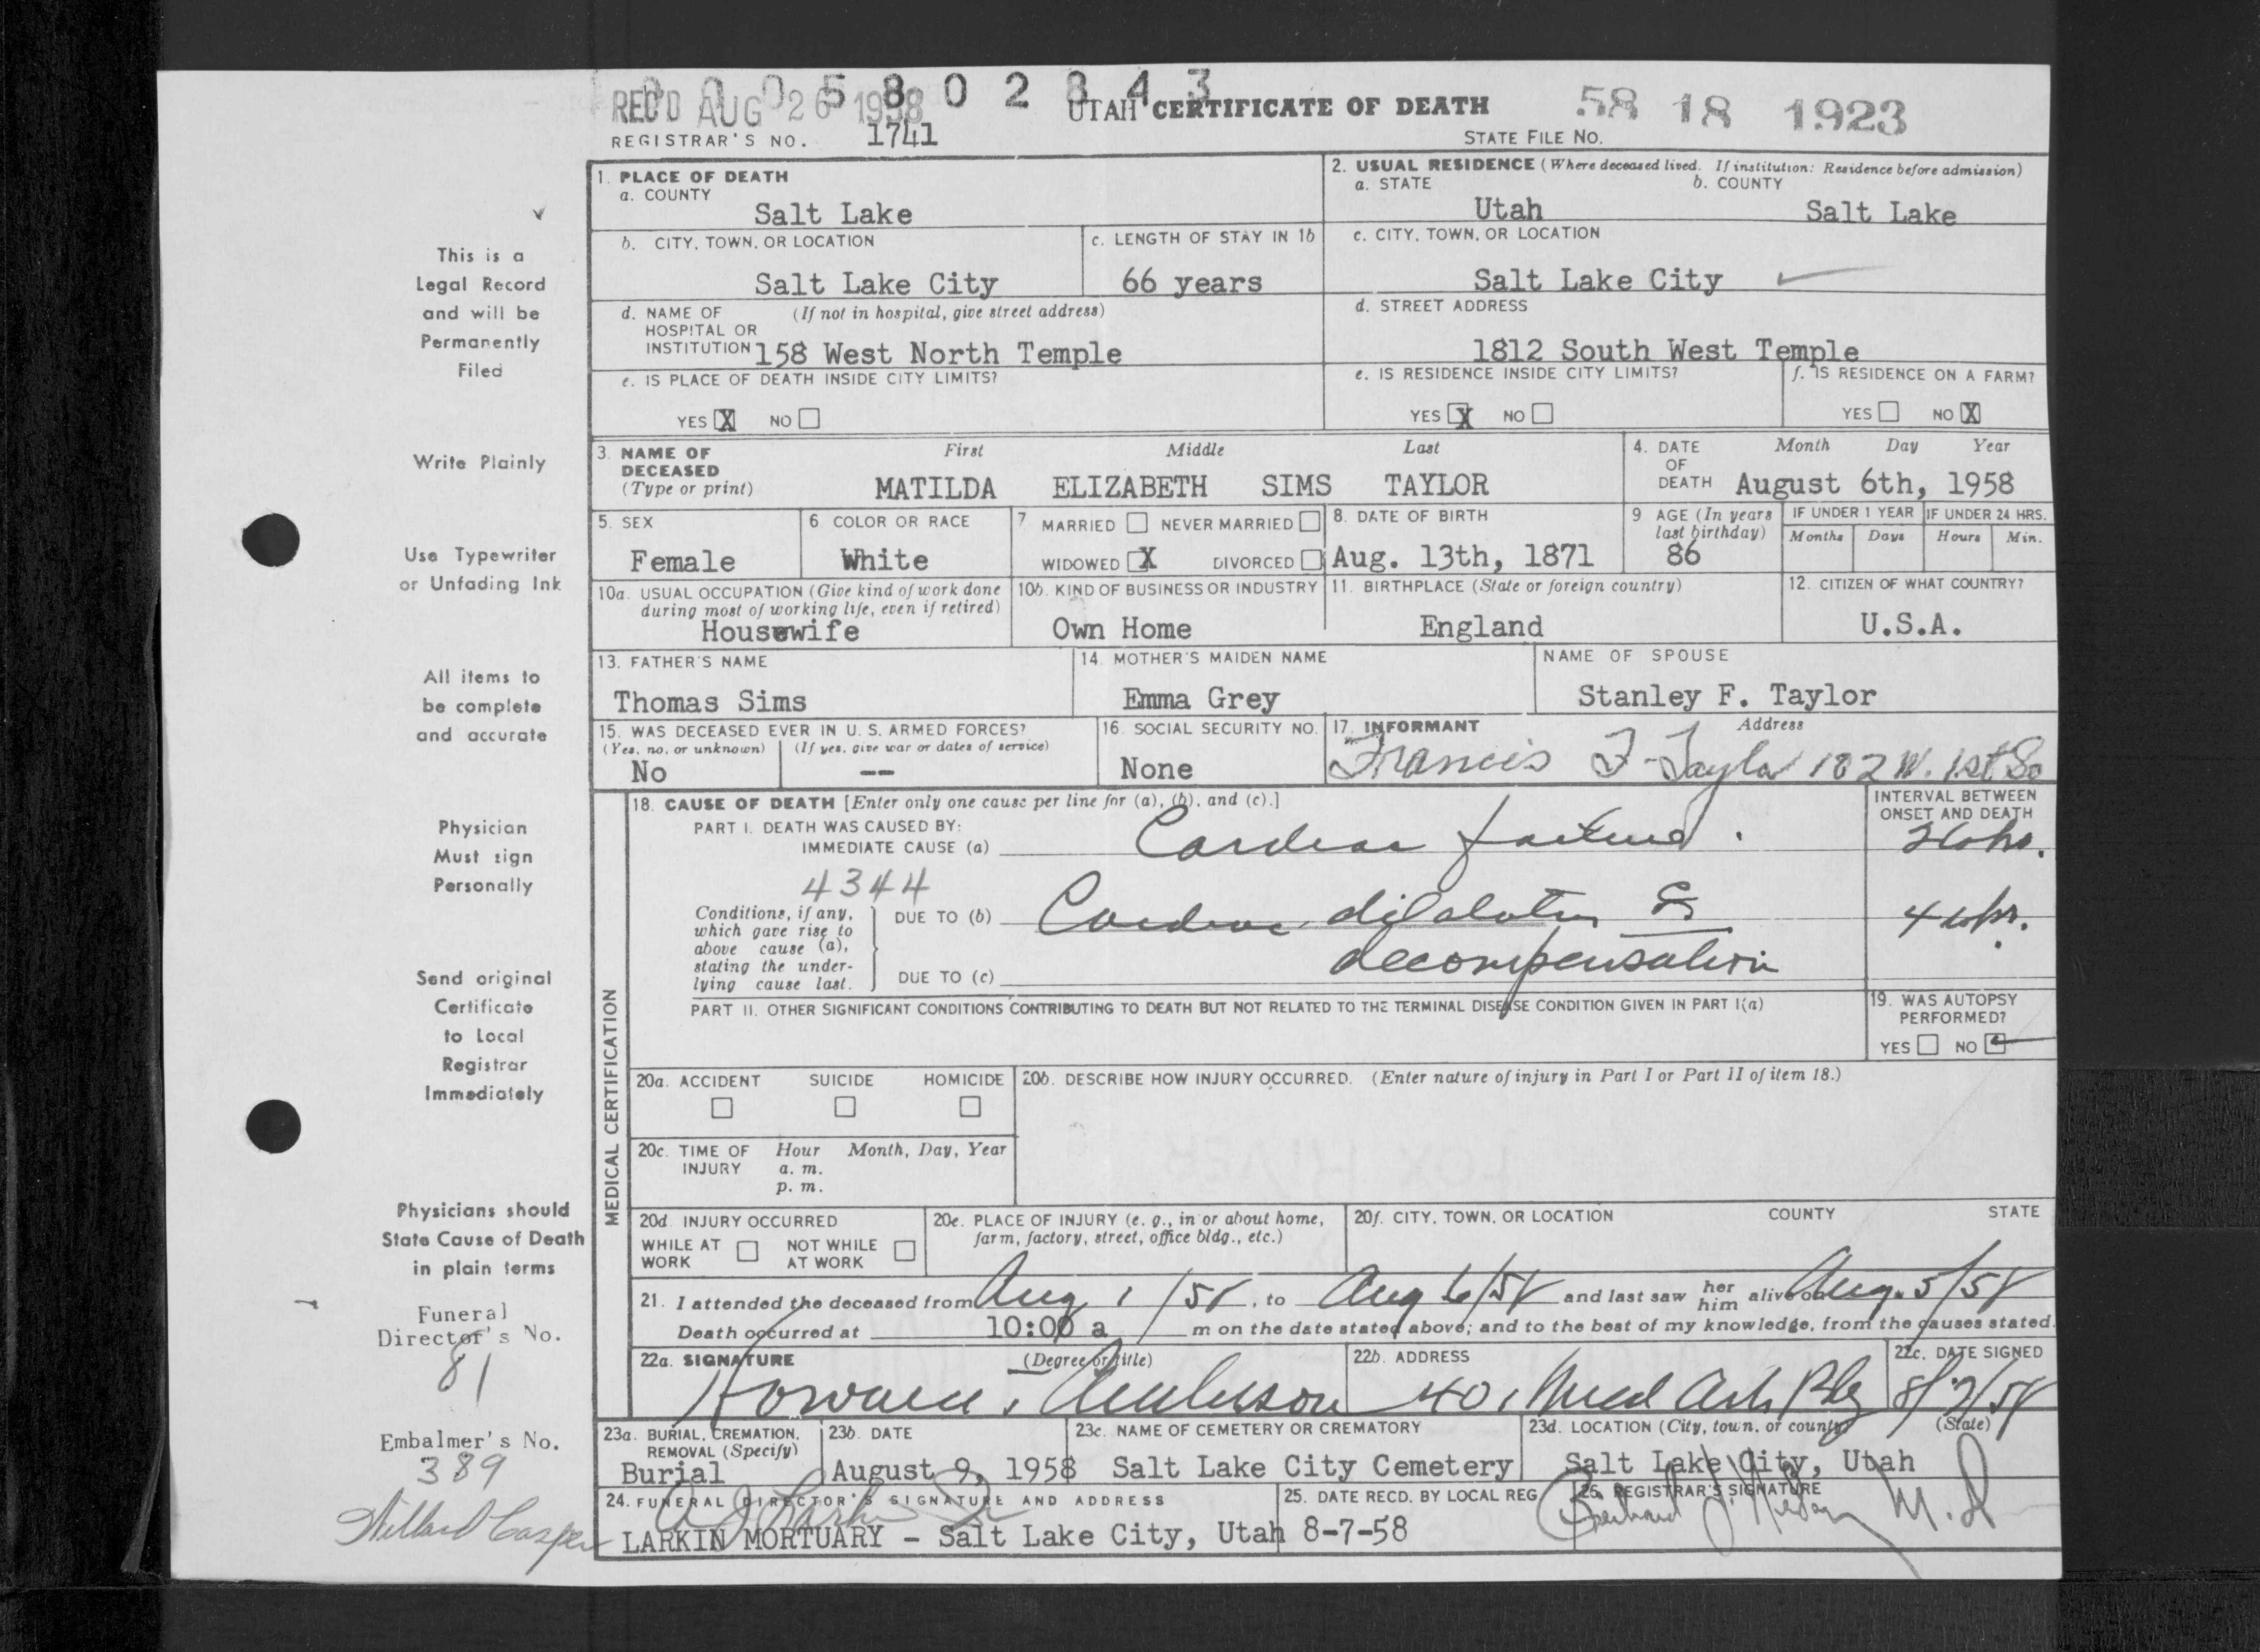 0 0 0 5 8 0 2 8 4 3
REC'D AUG 26 1958
UTAH CERTIFICATE OF DEATH
58 18 1923
REGISTRAR'S NO. 1741
STATE FILE NO.
This is a
Legal Record
and will be
Permanently
Filed
Write Plainly
Use Typewriter
or Unfading Ink
All items to
be complete
and accurate
Physician
Must sign
Personally
Send original
Certificate
to Local
Registrar
Immediately
Physicians should
State Cause of Death
in plain terms
Funeral
Director's No.
81
Embalmer's No.
389
Willard Casper
1. PLACE OF DEATH
a. COUNTY
Salt Lake
2. USUAL RESIDENCE (Where deceased lived. If institution: Residence before admission)
a. STATE b. COUNTY
Utah Salt Lake
b. CITY, TOWN, OR LOCATION
Salt Lake City
c. LENGTH OF STAY IN 1b
66 years
c. CITY, TOWN, OR LOCATION
Salt Lake City
d. NAME OF (If not in hospital, give street address)
HOSPITAL OR
INSTITUTION 158 West North Temple
d. STREET ADDRESS
1812 South West Temple
e. IS PLACE OF DEATH INSIDE CITY LIMITS?
YES X NO
e. IS RESIDENCE INSIDE CITY LIMITS?
YES X NO
f. IS RESIDENCE ON A FARM?
YES NO X
3. NAME OF DECEASED
(Type or print)
First Middle Last
MATILDA ELIZABETH SIMS TAYLOR
4. DATE OF DEATH
Month Day Year
August 6th, 1958
5. SEX
Female
6. COLOR OR RACE
White
7 MARRIED NEVER MARRIED
WIDOWED X DIVORCED
8. DATE OF BIRTH
Aug. 13th, 1871
9 AGE (In years
last birthday)
86
IF UNDER 1 YEAR IF UNDER 24 HRS.
Months Days Hours Min.
10a. USUAL OCCUPATION (Give kind of work done
during most of working life, even if retired)
Housewife
10b. KIND OF BUSINESS OR INDUSTRY
Own Home
11. BIRTHPLACE (State or foreign country)
England
12. CITIZEN OF WHAT COUNTRY?
U.S.A.
13. FATHER'S NAME
Thomas Sims
14. MOTHER'S MAIDEN NAME
Emma Grey
NAME OF SPOUSE
Stanley F. Taylor
15. WAS DECEASED EVER IN U. S. ARMED FORCES?
(Yes, no, or unknown) (If yes, give war or dates of service)
No --
16. SOCIAL SECURITY NO.
None
17. INFORMANT Address
Francis F. Taylor 182 W. 1st So
MEDICAL CERTIFICATION
18. CAUSE OF DEATH [Enter only one cause per line for (a), (b), and (c).]
INTERVAL BETWEEN
ONSET AND DEATH
PART I. DEATH WAS CAUSED BY:
IMMEDIATE CAUSE (a) Cardiac failure.
4344
Conditions, if any,
which gave rise to
above cause (a),
stating the under-
lying cause last.
DUE TO (b) Cardiac dilalation &
decompensation
DUE TO (c)
PART II. OTHER SIGNIFICANT CONDITIONS CONTRIBUTING TO DEATH BUT NOT RELATED TO THE TERMINAL DISEASE CONDITION GIVEN IN PART I(a)
19. WAS AUTOPSY
PERFORMED?
YES NO
20a. ACCIDENT SUICIDE HOMICIDE
20b. DESCRIBE HOW INJURY OCCURRED. (Enter nature of injury in Part I or Part II of item 18.)
20c. TIME OF INJURY
Hour Month, Day, Year
a. m.
p. m.
20d. INJURY OCCURRED
WHILE AT WORK NOT WHILE AT WORK
20e. PLACE OF INJURY (e. g., in or about home,
farm, factory, street, office bldg., etc.)
20f. CITY, TOWN, OR LOCATION COUNTY STATE
21. I attended the deceased from Aug 1/58, to Aug 6/58 and last saw her him alive on Aug. 5/58
Death occurred at 10:00 a m on the date stated above; and to the best of my knowledge, from the causes stated.
22a. SIGNATURE (Degree or title)
Howard Anderson
22b. ADDRESS
401 Med Arts Bldg
22c. DATE SIGNED
8/7/58
23a. BURIAL, CREMATION,
REMOVAL (Specify)
Burial
23b. DATE
August 9, 1958
23c. NAME OF CEMETERY OR CREMATORY
Salt Lake City Cemetery
23d. LOCATION (City, town, or county) (State)
Salt Lake City, Utah
24. FUNERAL DIRECTOR'S SIGNATURE AND ADDRESS
LARKIN MORTUARY - Salt Lake City, Utah
25. DATE RECD. BY LOCAL REG
8-7-58
26. REGISTRAR'S SIGNATURE
M.D